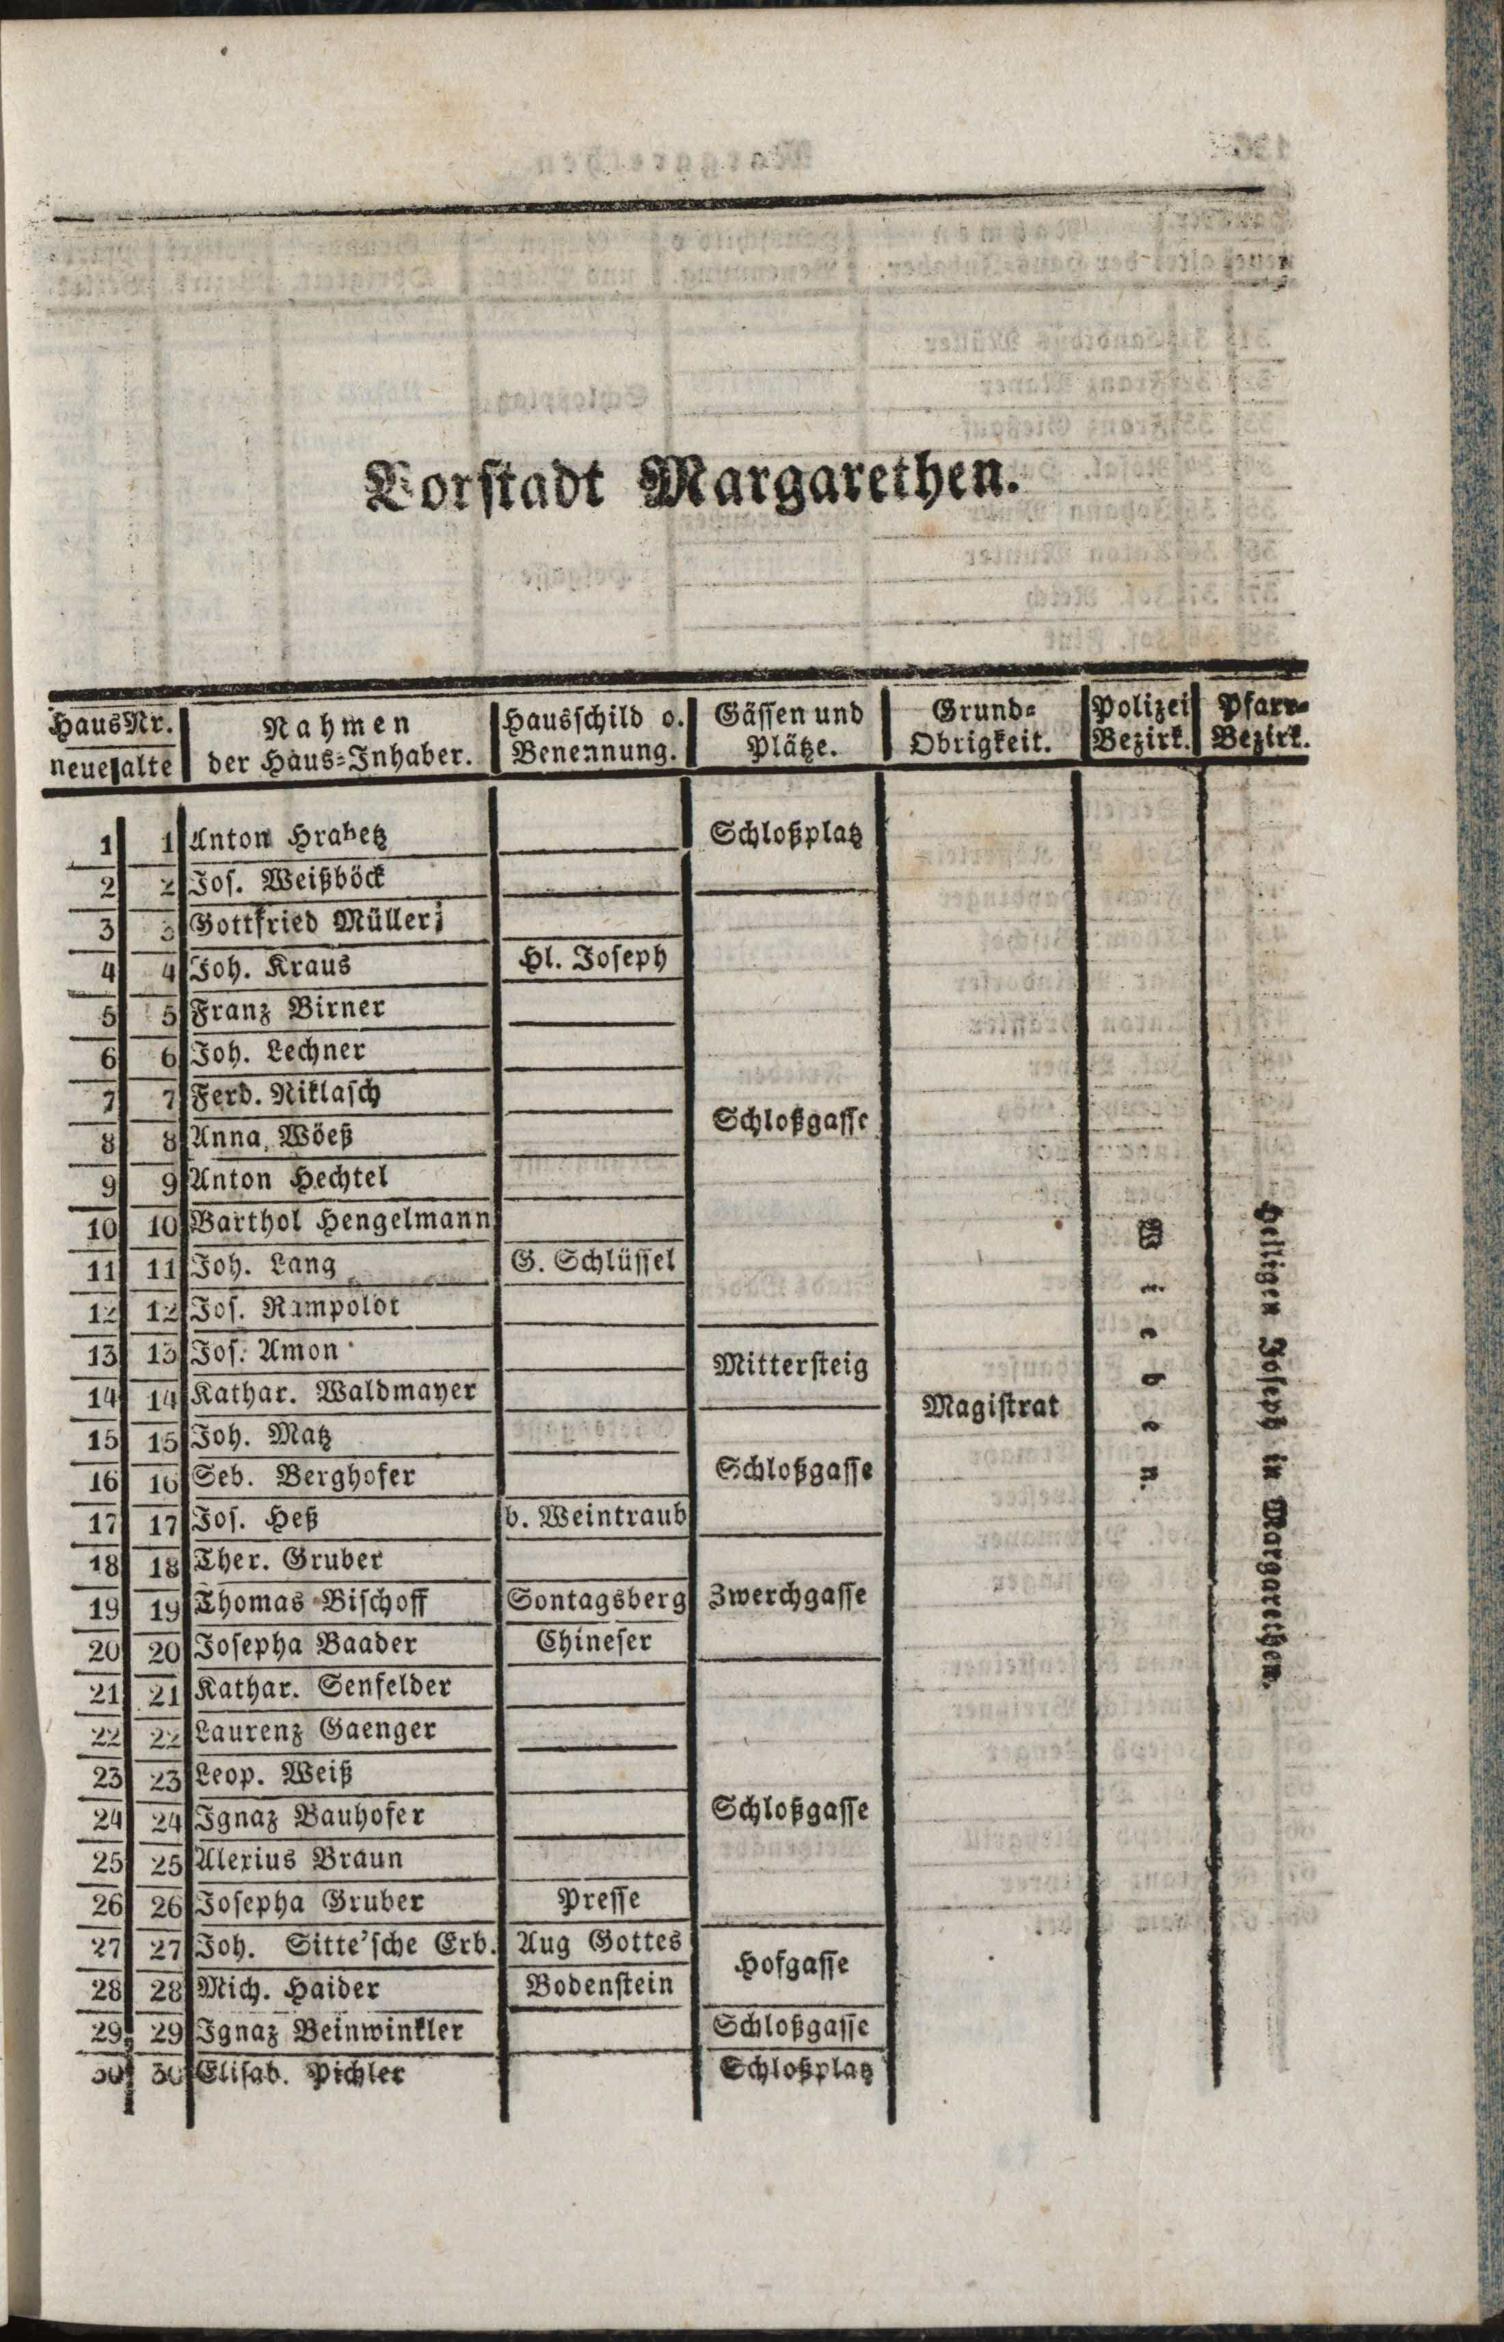 Vorstadt Margarethen.
HausNr. Nahmen Hausschild o. Gässen und Grund= Polizei Pfarr=
neue alte der Haus=Inhaber. Benennung. Plätze. Obrigkeit. Bezirk. Bezirk.
1 1 Anton Hrabetz Schloßplatz
2 2 Jos. Weißböck
3 3 Gottfried Müller
4 4 Joh. Kraus Hl. Joseph
5 5 Franz Birner
6 6 Joh. Lechner
7 7 Ferd. Niklasch
Schloßgasse
8 8 Anna Wöeß
9 9 Anton Hechtel
10 10 Barthol Hengelmann
11 11 Joh. Lang G. Schlüssel
12 12 Jos. Rampoldt
13 13 Jos. Amon
Mittersteig
14 14 Kathar. Waldmayer
Magistrat
Wieden.
Heiligen Joseph in Margarethen.
15 15 Joh. Matz
16 16 Seb. Berghofer Schloßgasse
17 17 Jos. Heß b. Weintraub
18 18 Ther. Gruber
19 19 Thomas Bischoff Sontagsberg Zwerchgasse
20 20 Josepha Baader Chineser
21 21 Kathar. Senfelder
22 22 Laurenz Gaenger
23 23 Leop. Weiß
24 24 Ignaz Bauhofer Schloßgasse
25 25 Alexius Braun
26 26 Josepha Gruber Presse
27 27 Joh. Sitte'sche Erb. Aug Gottes
Hofgasse
28 28 Mich. Haider Bodenstein
29 29 Ignaz Beinwinkler Schloßgasse
30 30 Elisab. Pichler Schloßplatz